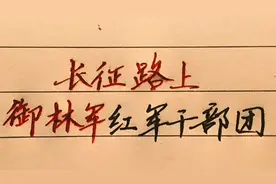 长征路上
御林军红军干部团